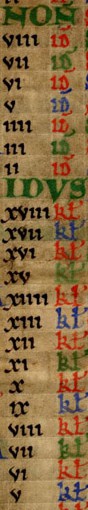 NON
viii id
vii id
vi id
v id
iiii id
iii id
ii id
IDVS
xviii kł
xvii kł
xvi kł
xv kł
xiiii kł
xiii kł
xii kł
xi kł
x kł
ix kł
viii kł
vii kł
vi kł
v kł